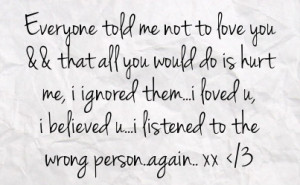 Everyone told me not to love you
&& that all you would do is hurt
me, i ignored them...i loved u,
i believed u...i listened to the
wrong person.again.. xx </3